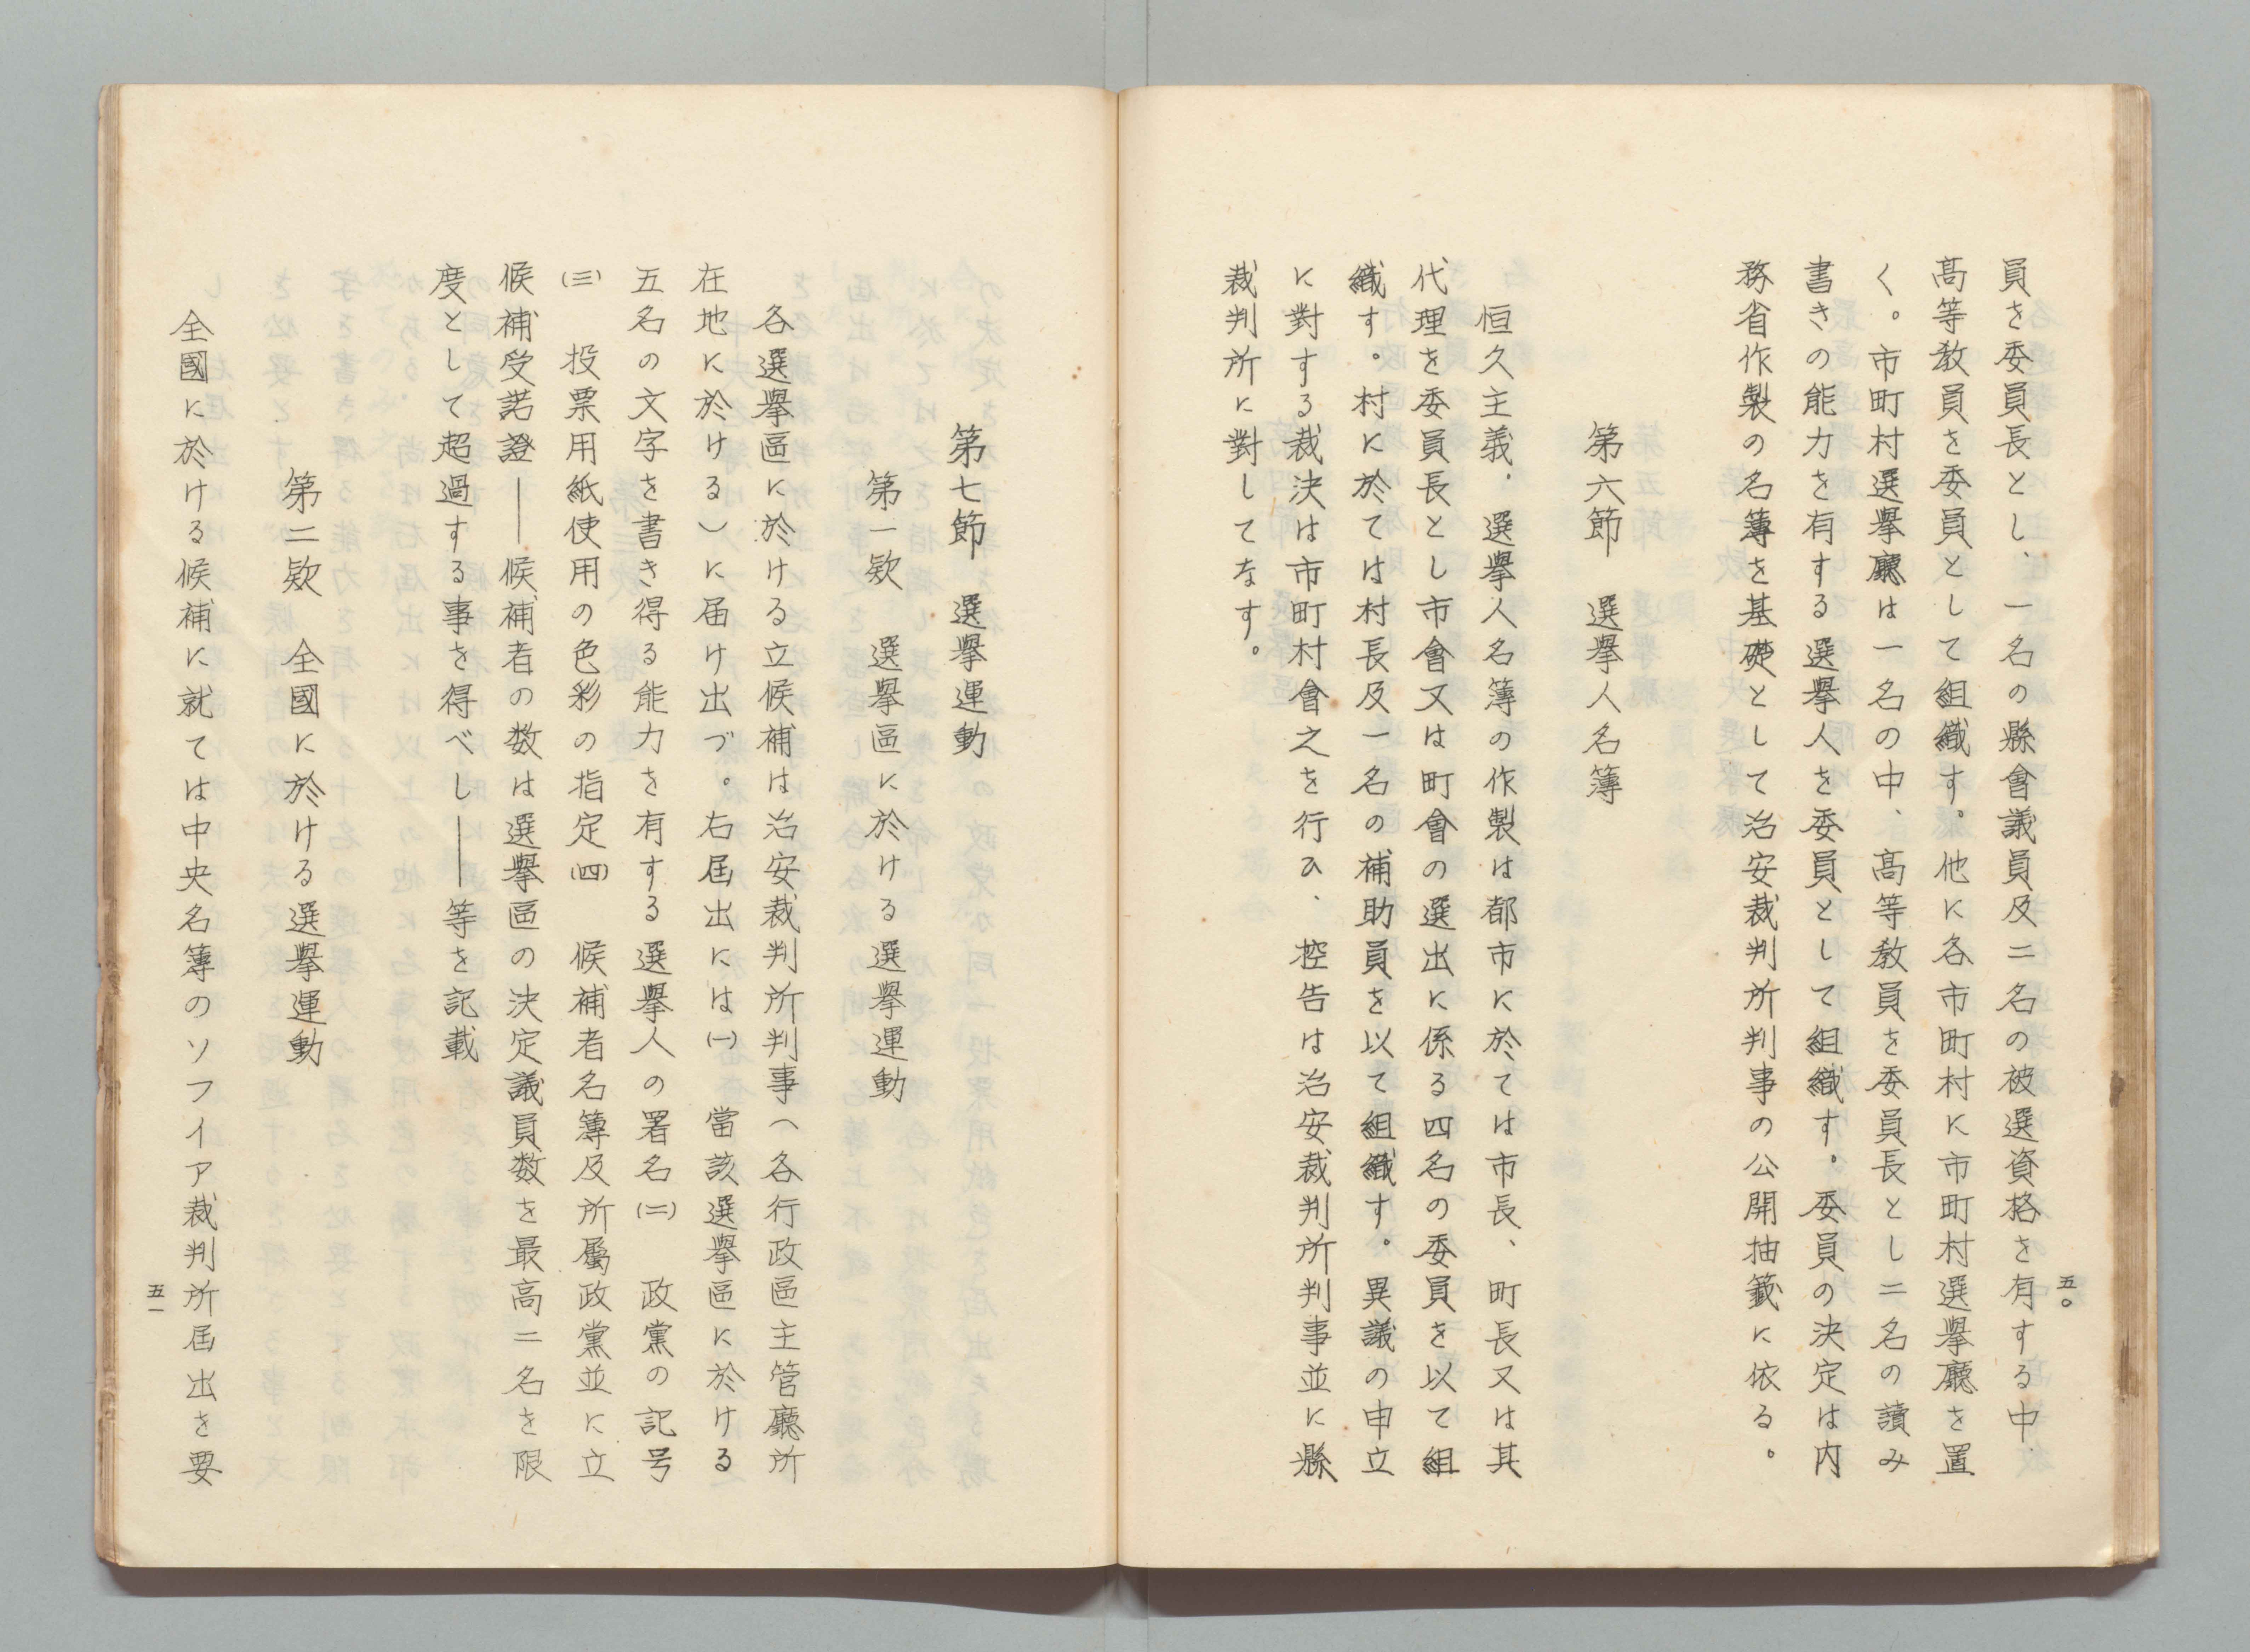 五〇
員を委員長とし、一名の縣會議員及二名の被選資格を有する中、
高等教員を委員として組織す。他に各市町村に市町村選擧廳を置
く。市町村選擧廳は一名の中、高等教員を委員長とし二名の讀み
書きの能力を有する選擧人を委員として組織す。委員の決定は内
務省作製の名簿を基礎として治安裁判所判事の公開抽籤に依る。
第六節　選擧人名簿
恒久主義．選擧人名簿の作製は都市に於ては市長、町長又は其
代理を委員長とし市會又は町會の選出に係る四名の委員を以て組
織す。村に於ては村長及一名の補助員を以て組織す。異議の申立
に對する裁決は市町村會之を行ひ、控告は治安裁判所判事並に縣
裁判所に對してなす。
第七節　選擧運動
第一欵　選擧區に於ける選擧運動
各選擧區に於ける立候補は治安裁判所判事（各行政區主管廳所
在地に於ける）に届け出づ。右届出には㈠　當該選擧區に於ける
五名の文字を書き得る能力を有する選擧人の署名㈡　政黨の記号
㈢　投票用紙使用の色彩の指定㈣　候補者名簿及所屬政黨並に立
候補受諾證――候補者の数は選擧區の決定議員数を最高二名を限
度として超過する事を得べし――等を記載
第二欵　全國に於ける選擧運動
全國に於ける候補に就ては中央名簿のソフイア裁判所届出を要
五一